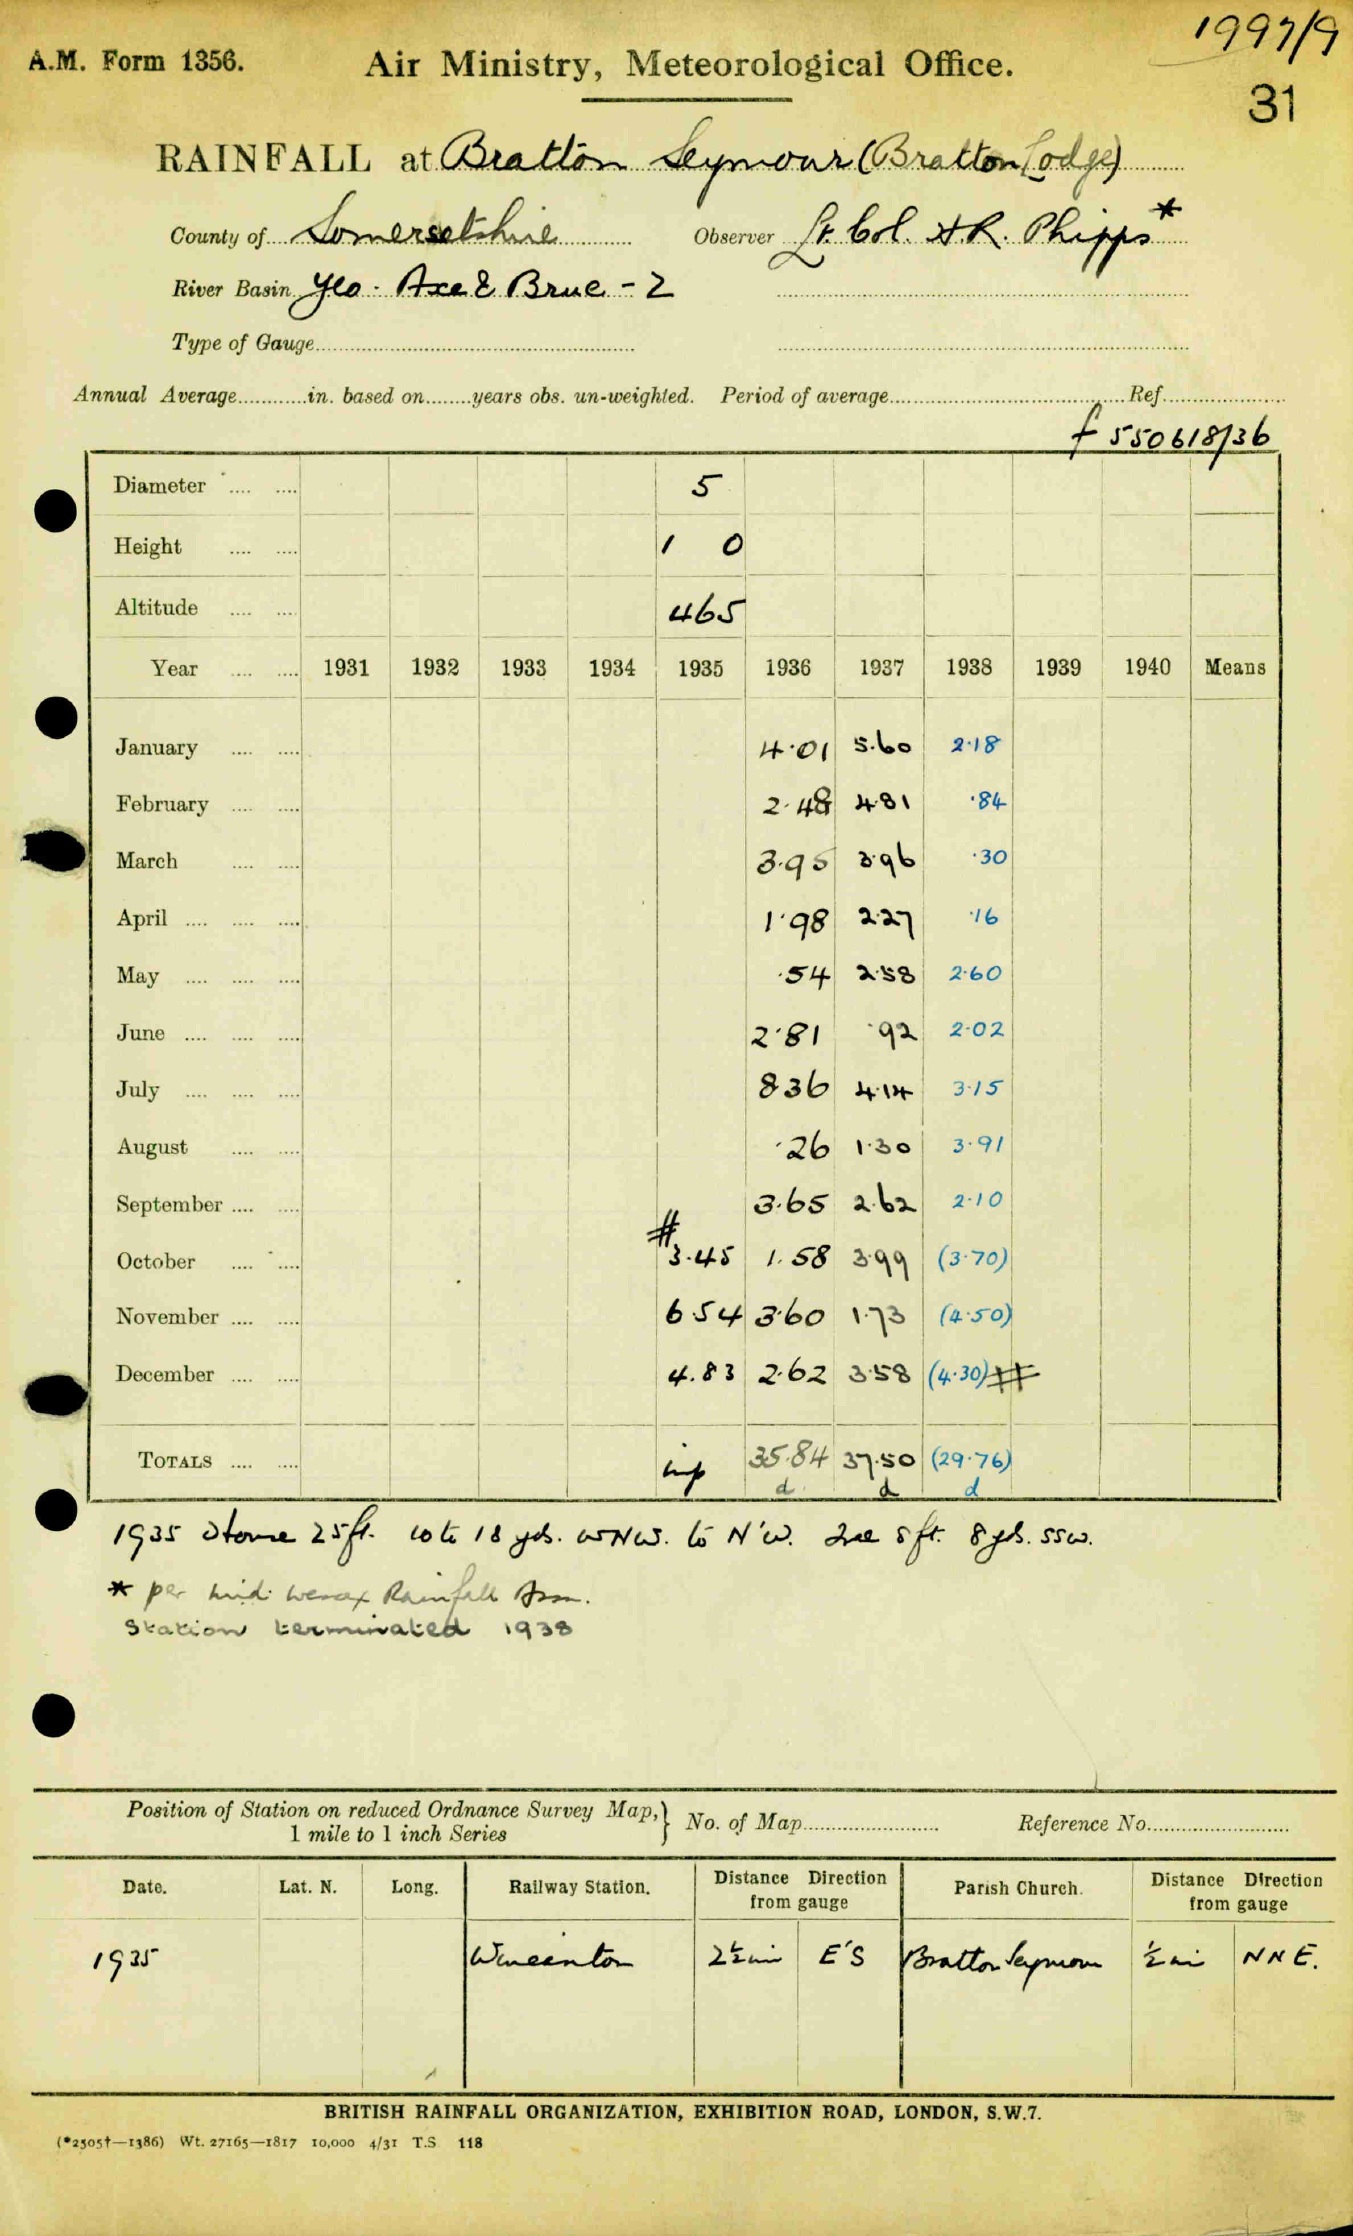 1997/9
A.M. Form 1356. Air Ministry, Meteorological Office.
31
RAINFALL at Bratton Seymour (Bratton Lodge)
County of Somersetshire Observer Lt. Col. A.R. Phipps *
River Basin Yeo. Axe & Brue - 2
Type of Gauge
Annual Average in. based on years obs. un-weighted. Period of average Ref.
f 550618/36
Diameter 5
Height 1 0
Altitude 465
Year 1931 1932 1933 1934 1935 1936 1937 1938 1939 1940 Means
January 4.01 5.60 2.18
February 2.48 4.81 .84
March 3.95 3.96 .30
April 1.98 2.27 .16
May .54 2.58 2.60
June 2.81 .92 2.02
July 8.36 4.14 3.15
August .26 1.30 3.91
September 3.65 2.62 2.10
October # 3.45 1.58 3.99 (3.70)
November 6.54 3.60 1.73 (4.50)
December 4.83 2.62 3.58 (4.30) #
TOTALS imp 35.84 37.50 (29.76)
d d d
1935 House 25ft. 10 to 18 yds. WNW. to N'W. Tree 8ft. 8 yds. SSW.
* per Mid. Wessex Rainfall Assn.
Station terminated 1938
Position of Station on reduced Ordnance Survey Map, } No. of Map Reference No.
1 mile to 1 inch Series
Date. Lat. N. Long. Railway Station. Distance Direction from gauge Parish Church. Distance Direction from gauge
1935 Wincanton 2½ mi E'S Bratton Seymour ½ mi NNE.
BRITISH RAINFALL ORGANIZATION, EXHIBITION ROAD, LONDON, S.W.7.
(*2505†—1386) Wt. 27165—1817 10,000 4/31 T.S 118